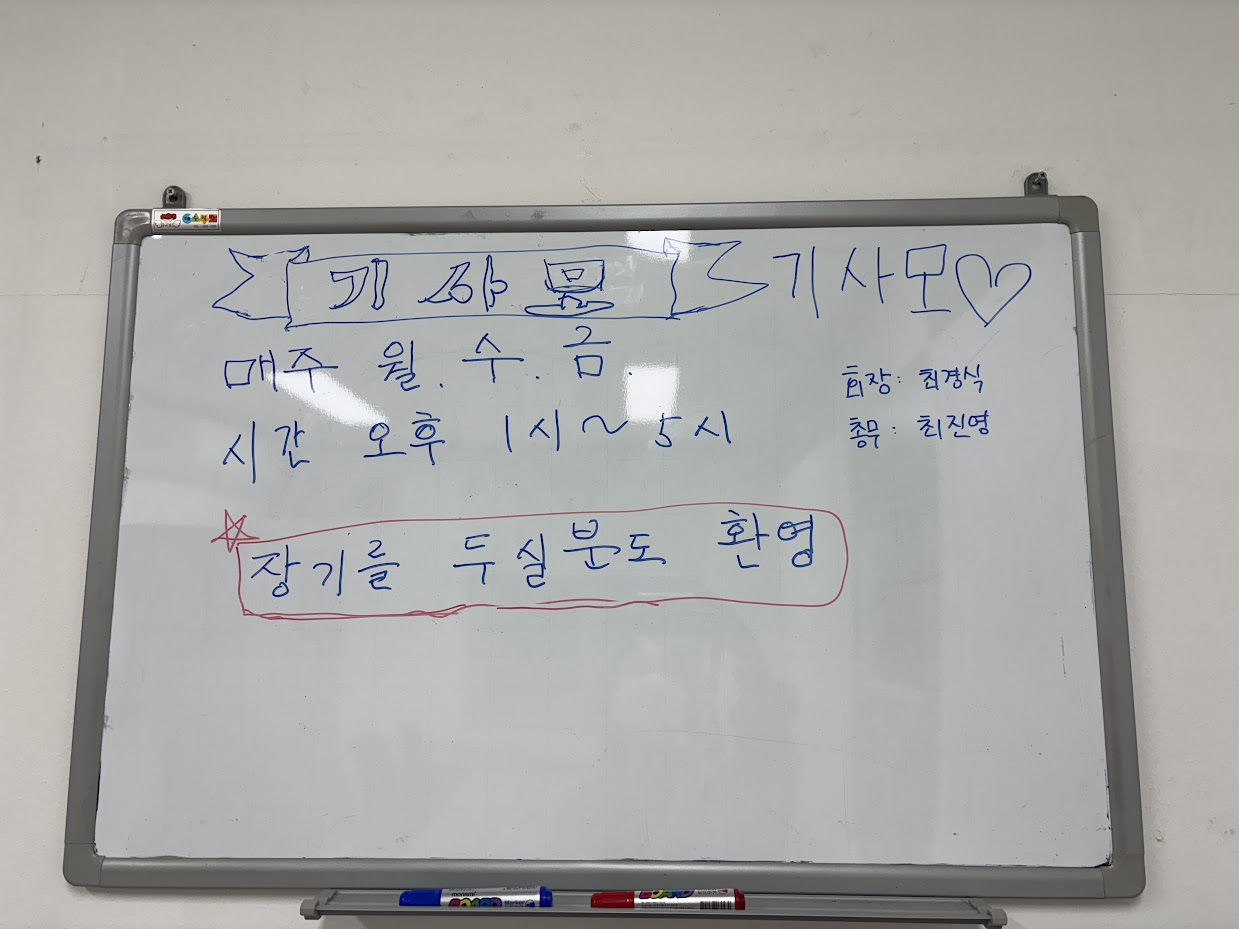 기사모 기사모♡
매주 월. 수. 금.
시간 오후 1시~5시
회장: 최경식
총무: 최진영
☆ 장기를 두실분도 환영
monami BOARD Marker
BOARD